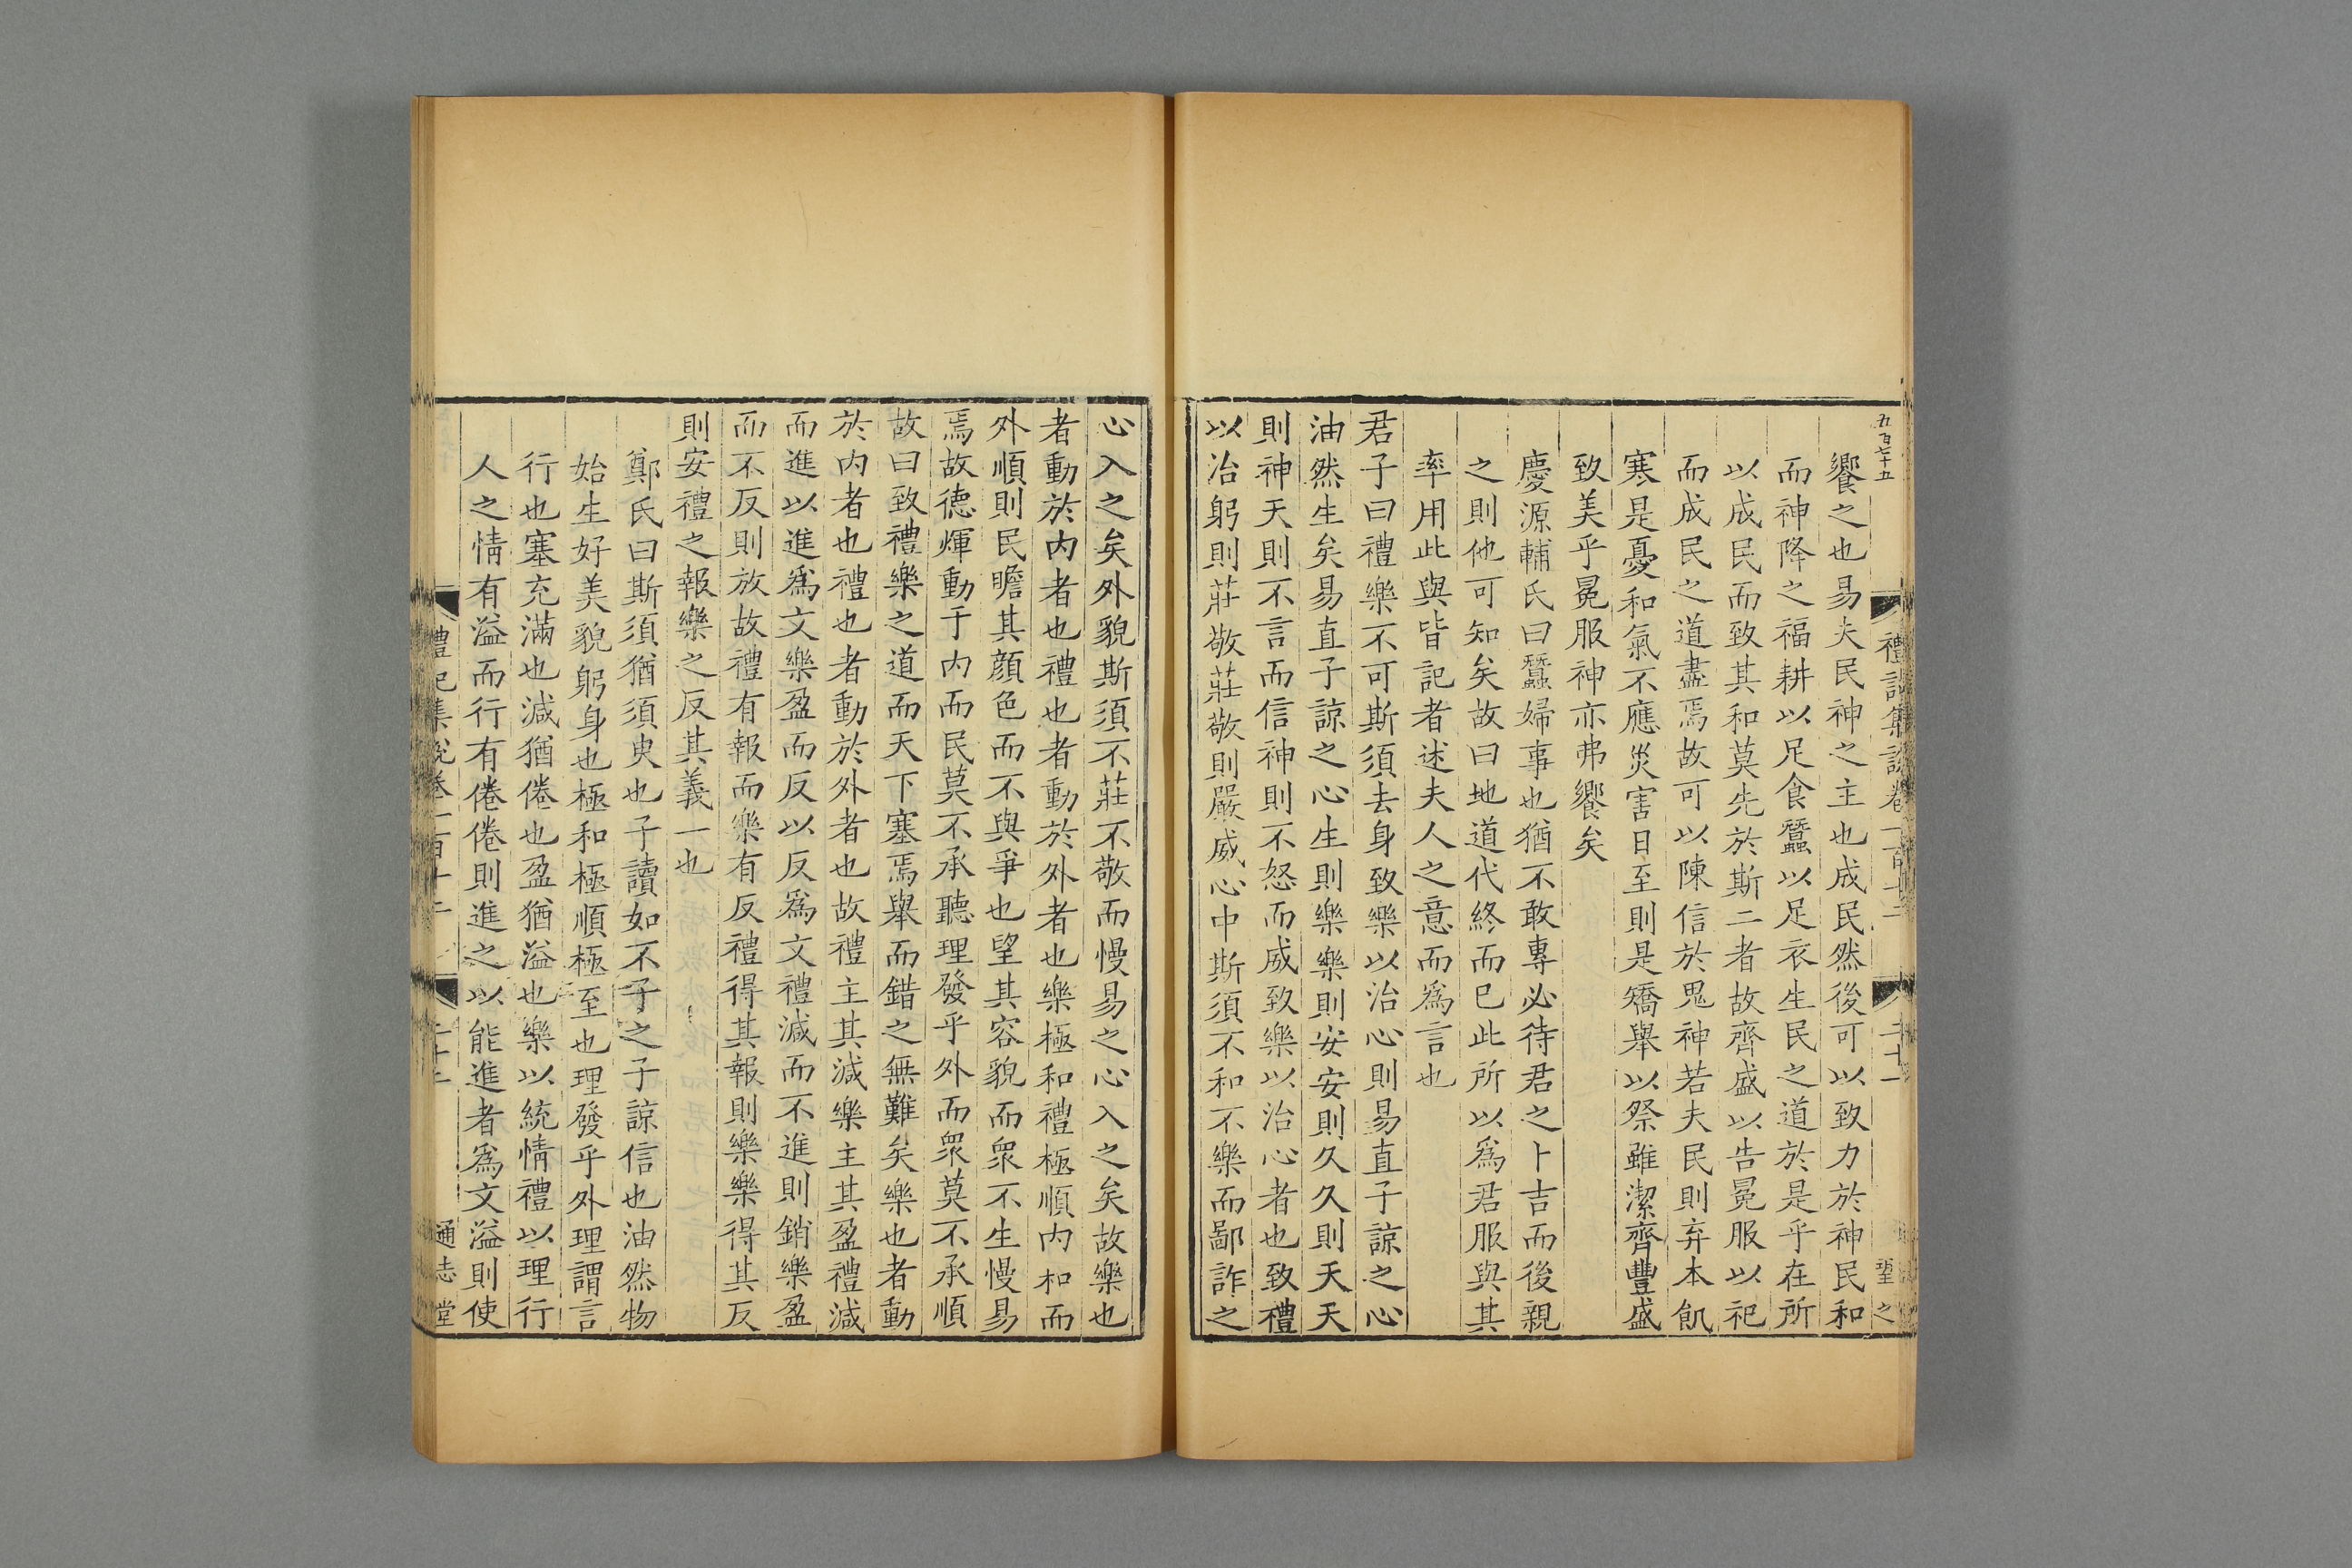 五百七十五
禮記集說卷一百十二
二十一
望之
饗之也易夫民神之主也成民然後可以致力於神民和
而神降之福耕以足食蠶以足衣生民之道於是乎在所
以成民而致其和莫先於斯二者故齊盛以告冕服以祀
而成民之道盡焉故可以陳信於鬼神若夫民則弃本飢
寒是憂和氣不應災害日至則是矯舉以祭雖潔齊豐盛
致美乎冕服神亦弗饗矣
慶源輔氏曰蠶婦事也猶不敢專必待君之卜吉而後親
之則他可知矣故曰地道代終而已此所以為君服與其
率用此與皆記者述夫人之意而為言也
君子曰禮樂不可斯須去身致樂以治心則易直子諒之心
油然生矣易直子諒之心生則樂樂則安安則久久則天天
則神天則不言而信神則不怒而威致樂以治心者也致禮
以治躬則莊敬莊敬則嚴威心中斯須不和不樂而鄙詐之
心入之矣外貌斯須不莊不敬而慢易之心入之矣故樂也
者動於内者也禮也者動於外者也樂極和禮極順内和而
外順則民瞻其顏色而不與爭也望其容貌而衆不生慢易
焉故德煇動于内而民莫不承聽理發乎外而衆莫不承順
故曰致禮樂之道而天下塞焉舉而錯之無難矣樂也者動
於内者也禮也者動於外者也故禮主其減樂主其盈禮減
而進以進為文樂盈而反以反為文禮減而不進則銷樂盈
而不反則放故禮有報而樂有反禮得其報則樂樂得其反
則安禮之報樂之反其義一也
鄭氏曰斯須猶須臾也子讀如不子之子諒信也油然物
始生好美貌躬身也極和極順極至也理發乎外理謂言
行也塞充滿也減猶倦也盈猶溢也樂以統情禮以理行
人之情有溢而行有倦倦則進之以能進者為文溢則使
禮記集說卷一百十二
通志堂